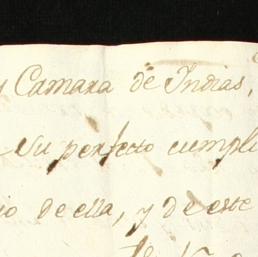 y Camara de Indias,
su perfecto cumpli
io de ella, y de este